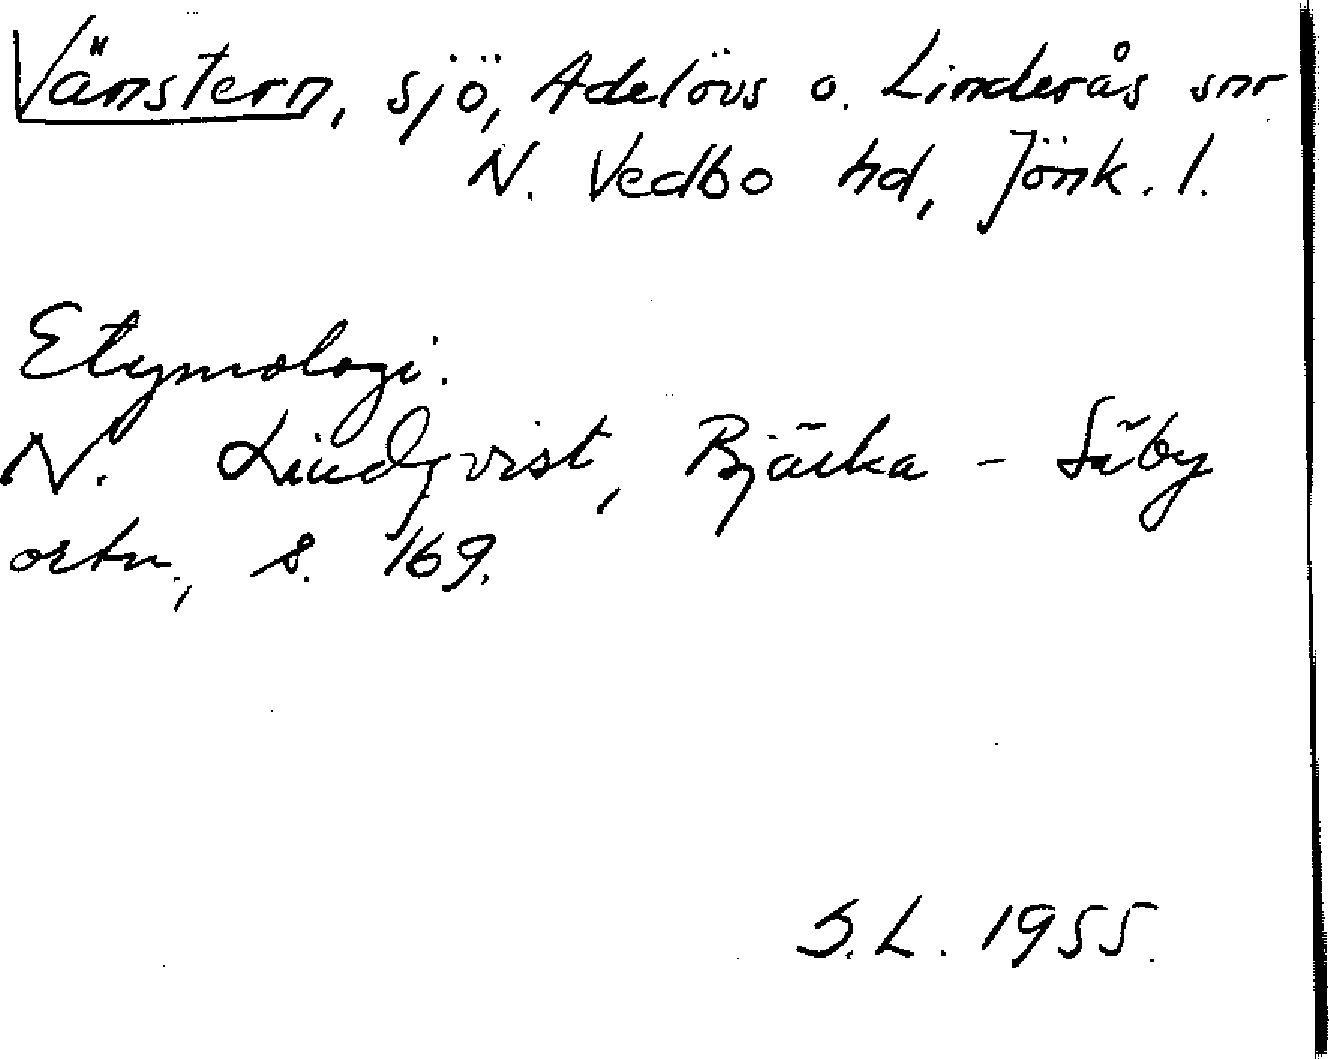 Vänstern, sjö, Adelövs o. Linderås snr
N. Vedbo hd, Jönk. l.
Etymologi.
N. Lindqvist, Bjärka - Säby
ortn., s. 169.
S.L. 1955.